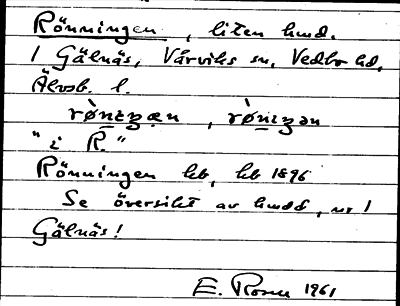 Rönningen, liten hmd.
i Gälnäs, Vårviks sn, Vedbo hd,
Älvsb. l.
"i R."
Rönningen hb, hb 1896
Se översikt av hmdd, nr 1
Gälnäs!
E. Rosen 1961